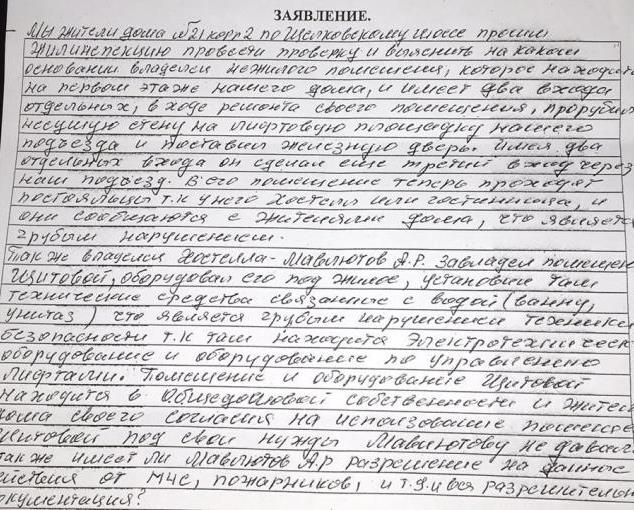 ЗАЯВЛЕНИЕ.
Мы жители дома №21 корп 2 по Щелковскому шоссе просим
жилинспекцию провести проверку и выяснить на каком
основании владелец нежилого помещения, которое находится
на первом этаже нашего дома, и имеет два входа
отдельных, в ходе ремонта своего помещения, прорубил
несущую стену на лифтовую площадку нашего
подъезда и поставил железную дверь. Имея два
отдельных входа он сделал еще третий вход через
наш подъезд. В его помещение теперь проходят
постояльцы т.к у него хостел или гостиница, и
они сообщаются с жителями дома, что является
грубым нарушением.
Также владелец хостелла - Мавлютов А.Р. Завладел помещен
Щитовой, оборудовал его под жилое, установил там
технические средства связанные с водой (ванну,
унитаз) что является грубым нарушением техники
безопасности т.к там находится Электротехническ
оборудование и оборудование по управлению
лифтами. Помещение и оборудование Щитовой
находится в Общедомовой собственности и жители
дома своего согласия на использование помещение
Щитовой под свои нужды Мавлютову не давали
также имеет ли Мавлютов А.Р разрешение на данные
действия от МЧС, пожарников, и т.д и вся разрешительн
окументация?